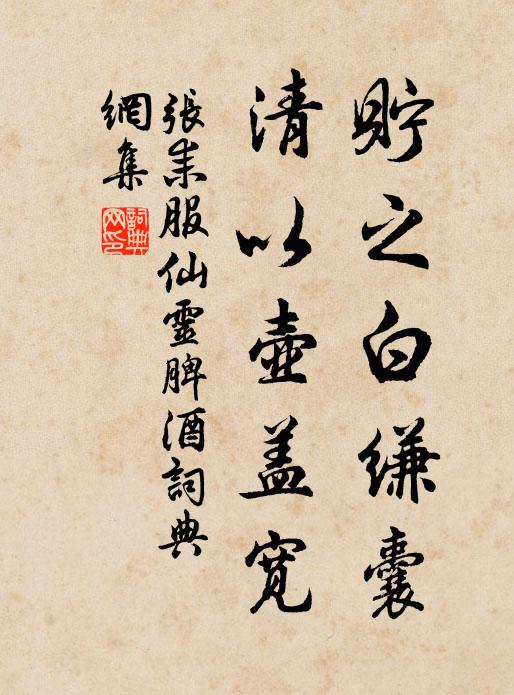 貯之白縑囊
清以壺盖寬
張耒服仙靈脾酒詞典
網集
詞典网印